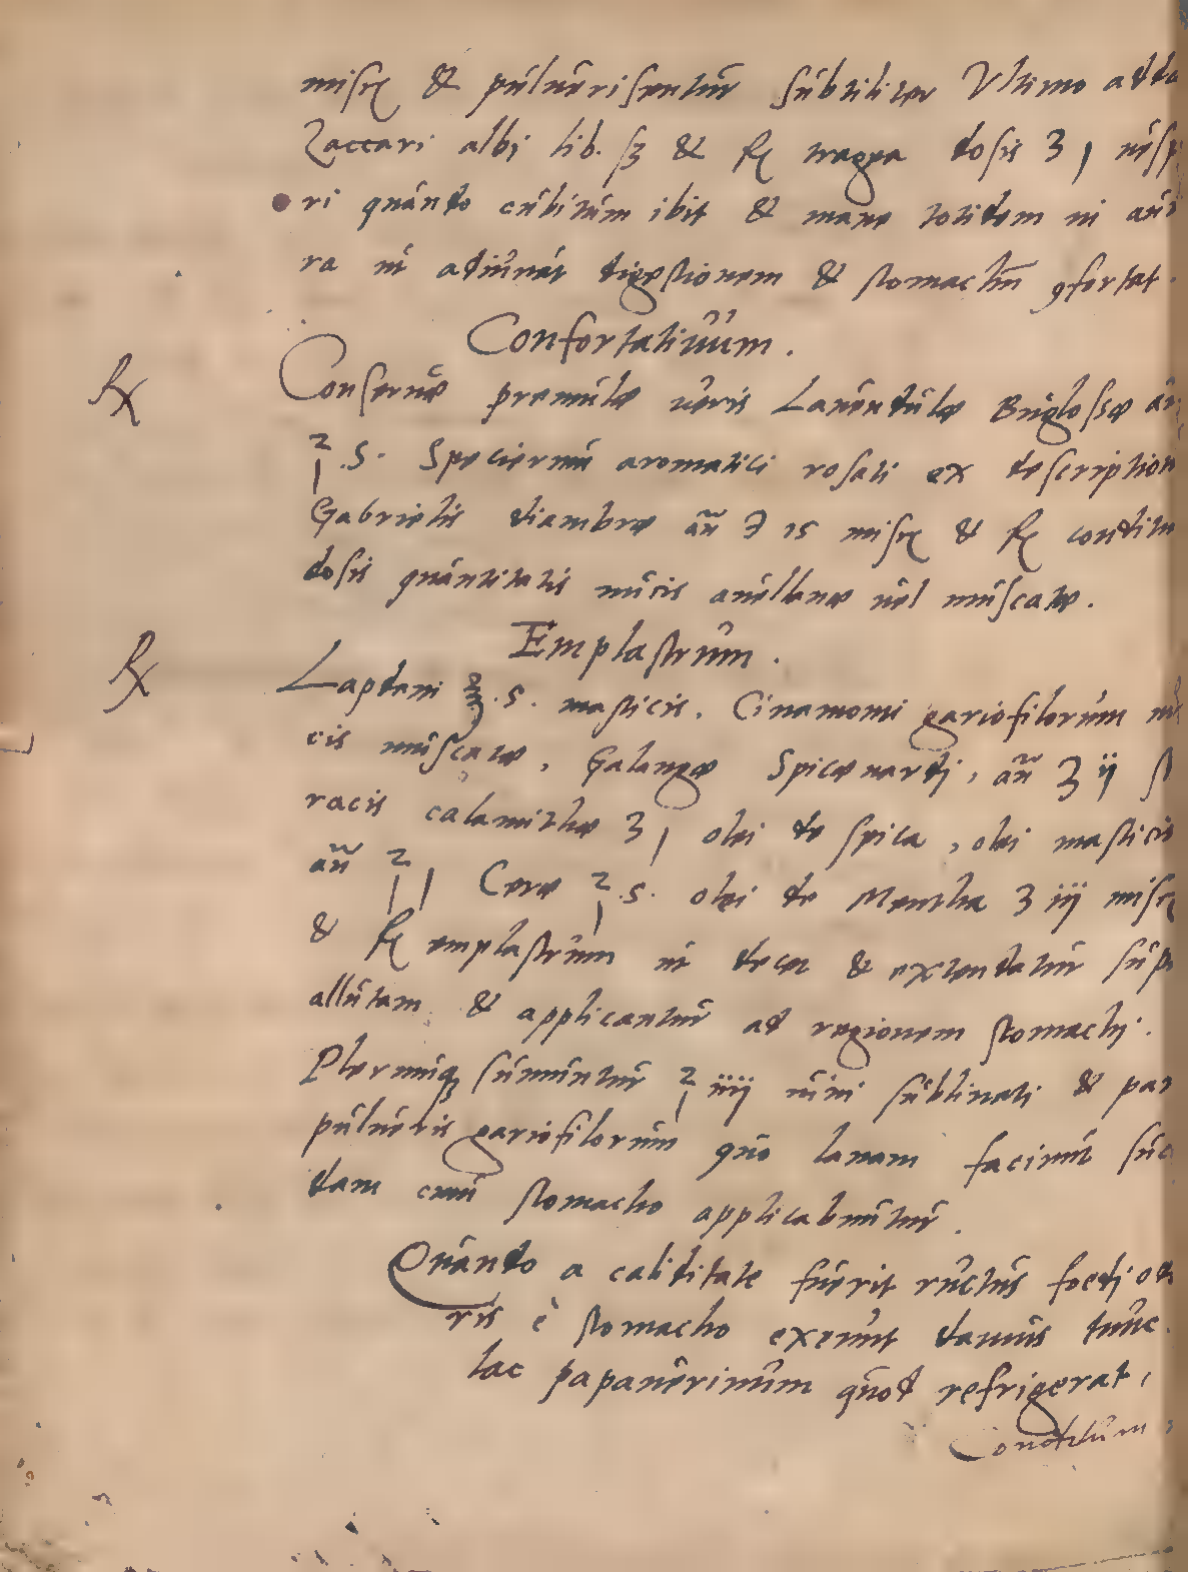 misc & puluerisentur subtiliter Ultimo adda
Zaccari albi lib. ß & f tragea dosis ʒ j uesp
ri quando cubitum ibit & mane totidem in au
ra ut adiuuat digestionem & stomachū ꝯfortat.
Confortatiuum.
℞ Conseruæ premulæ ueris Lauendulæ Buglossæ añ
℥ .s. Specierum aromatici rosati ex description
Gabrielis diambræ añ ℈ is misc & f conditu
dosis quantitatis nucis auellanæ uel muscatæ.
Emplastrum.
℞ Lapdani ℥ .s. masticis. Cinamomi gariofilorum nu
cis muscatæ, Galangæ Spicænardj, añ ʒ ij st
racis calamithæ ʒ j olei de spica, olei masticis
añ ℥ j Ceræ ℥ .s. olei de Mentha ʒ iij misc
& f emplastrum ut decet & extendatur sup
allutam & applicantur ad regionem stomachj.
Plerumqꝫ sumuntur ℥ iiij uini sublimati & par
pulueris gariofilorum quo lanam facimus suc
dam cum stomacho applicabuntur.
Quando a caliditate fuerit ructus foedj odo
ris è stomacho exeunt damus tunc
lac papauerinum quod refrigerat,
Conditum